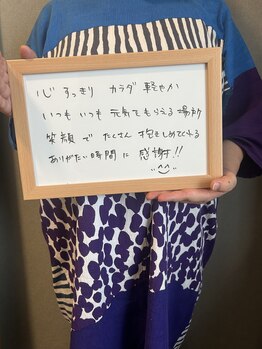 心 すっきり カラダ 軽やか
いつも いつも 元気でもらえる場所
笑顔で たくさん 抱きしめてくれる
ありがたい時間に 感謝!!